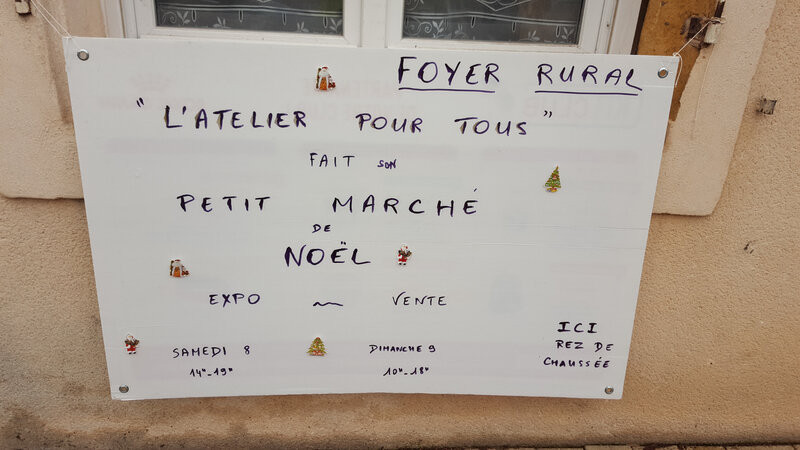 FOYER RURAL
"L'ATELIER POUR TOUS"
FAIT SON
PETIT MARCHÉ
DE
NOËL
EXPO ~ VENTE
SAMEDI 8
14H-19H
DIMANCHE 9
10H-18H
ICI
REZ DE
CHAUSSÉE